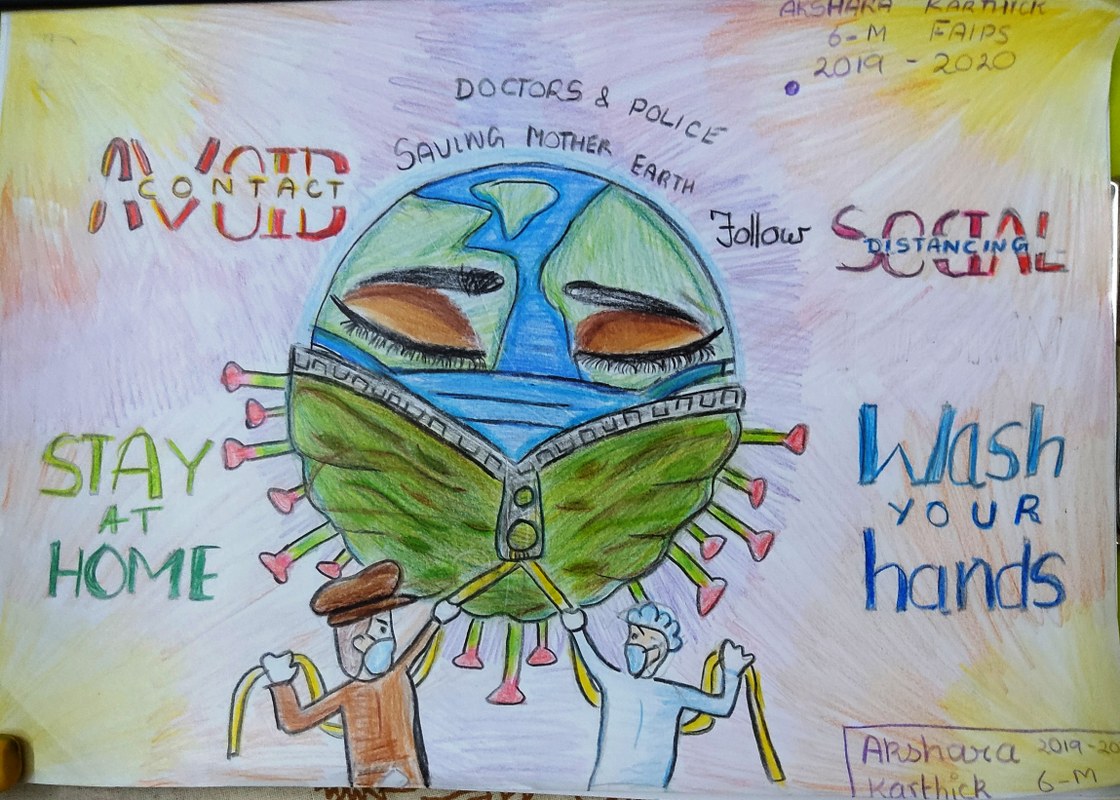 AKSHARA KARTHICK
6-M FAIPS
2019 - 2020
DOCTORS & POLICE
SAVING MOTHER EARTH
AVOID
CONTACT
Follow SOCIAL
DISTANCING
STAY
AT
HOME
Wash
YOUR
hands
Akshara 2019-20
Karthick 6-M